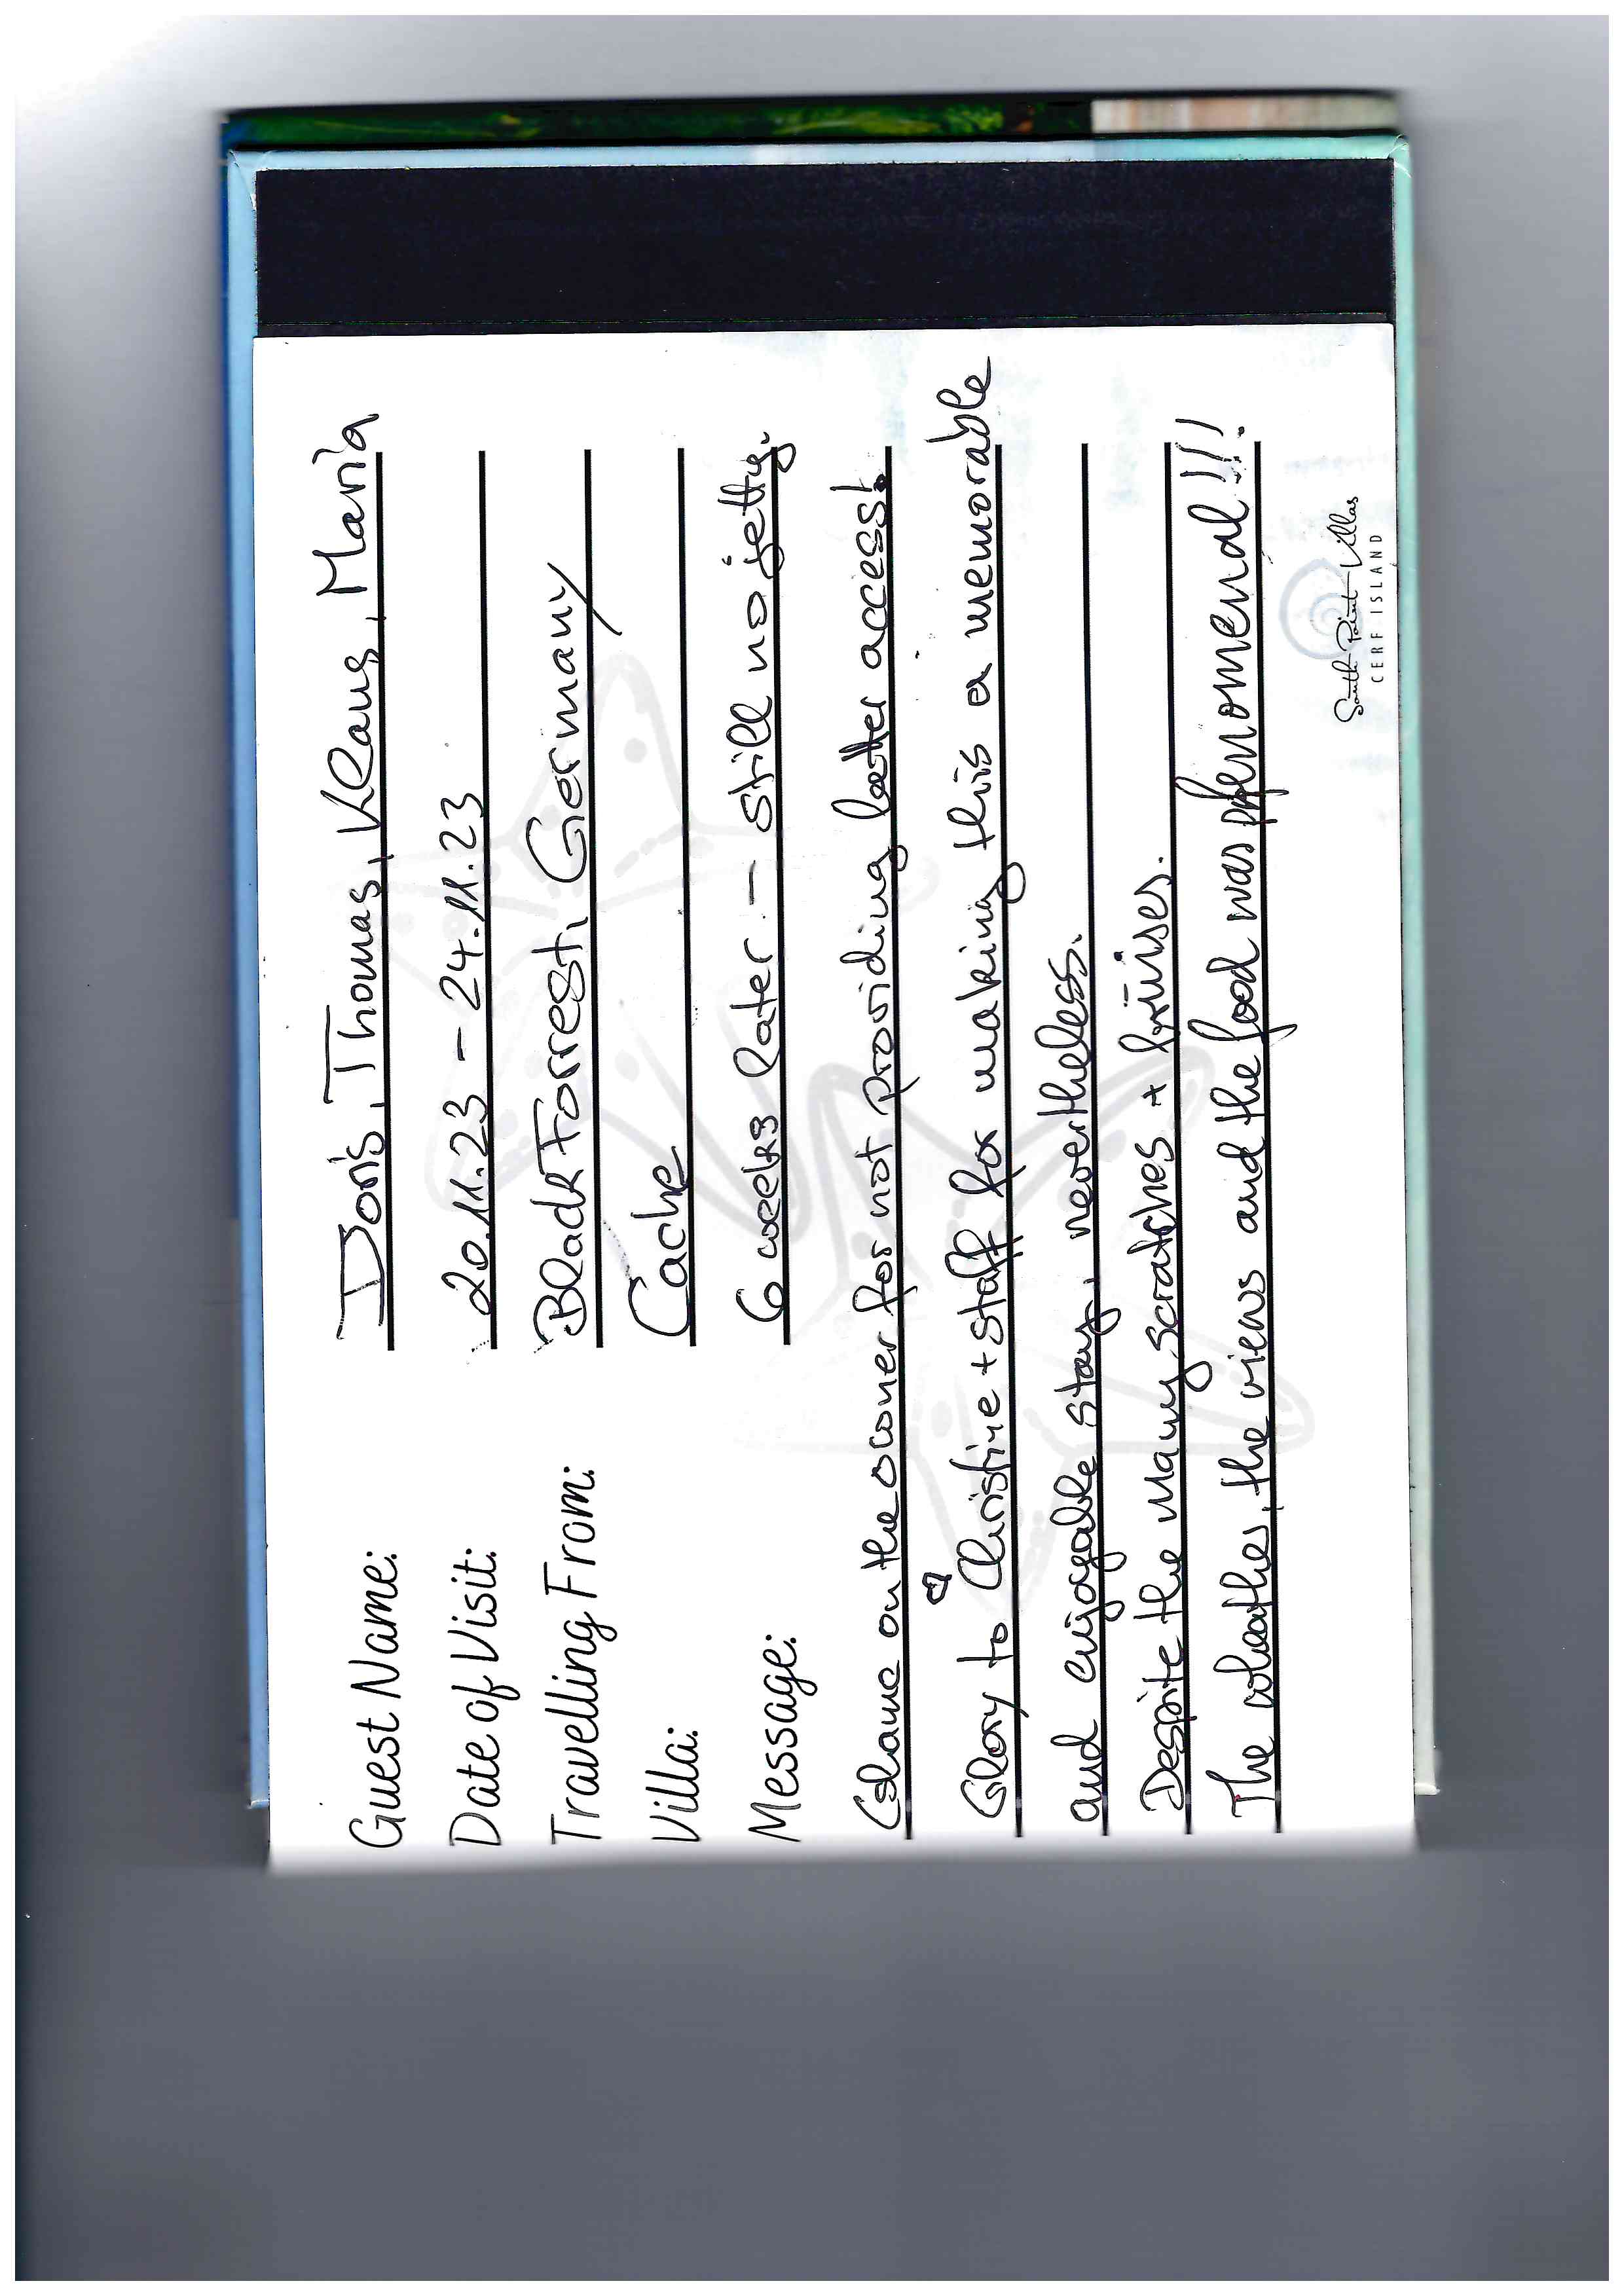 Guest Name: Doris, Thomas, Klaus, Maria
Date of Visit: 20.11.23 - 24.11.23
Travelling From: Black Forrest, Germany
Villa: Cache
Message: 6 weeks later - still no jetty.
Shame on the owner for not providing better access!
Glory to Christine + staff for making this a memorable
and enjoyable stay, nevertheless.
Despite the many scratches + brüises.
The wheather, the views and the food was phenomenal!!!
South Point Villas
CERF ISLAND